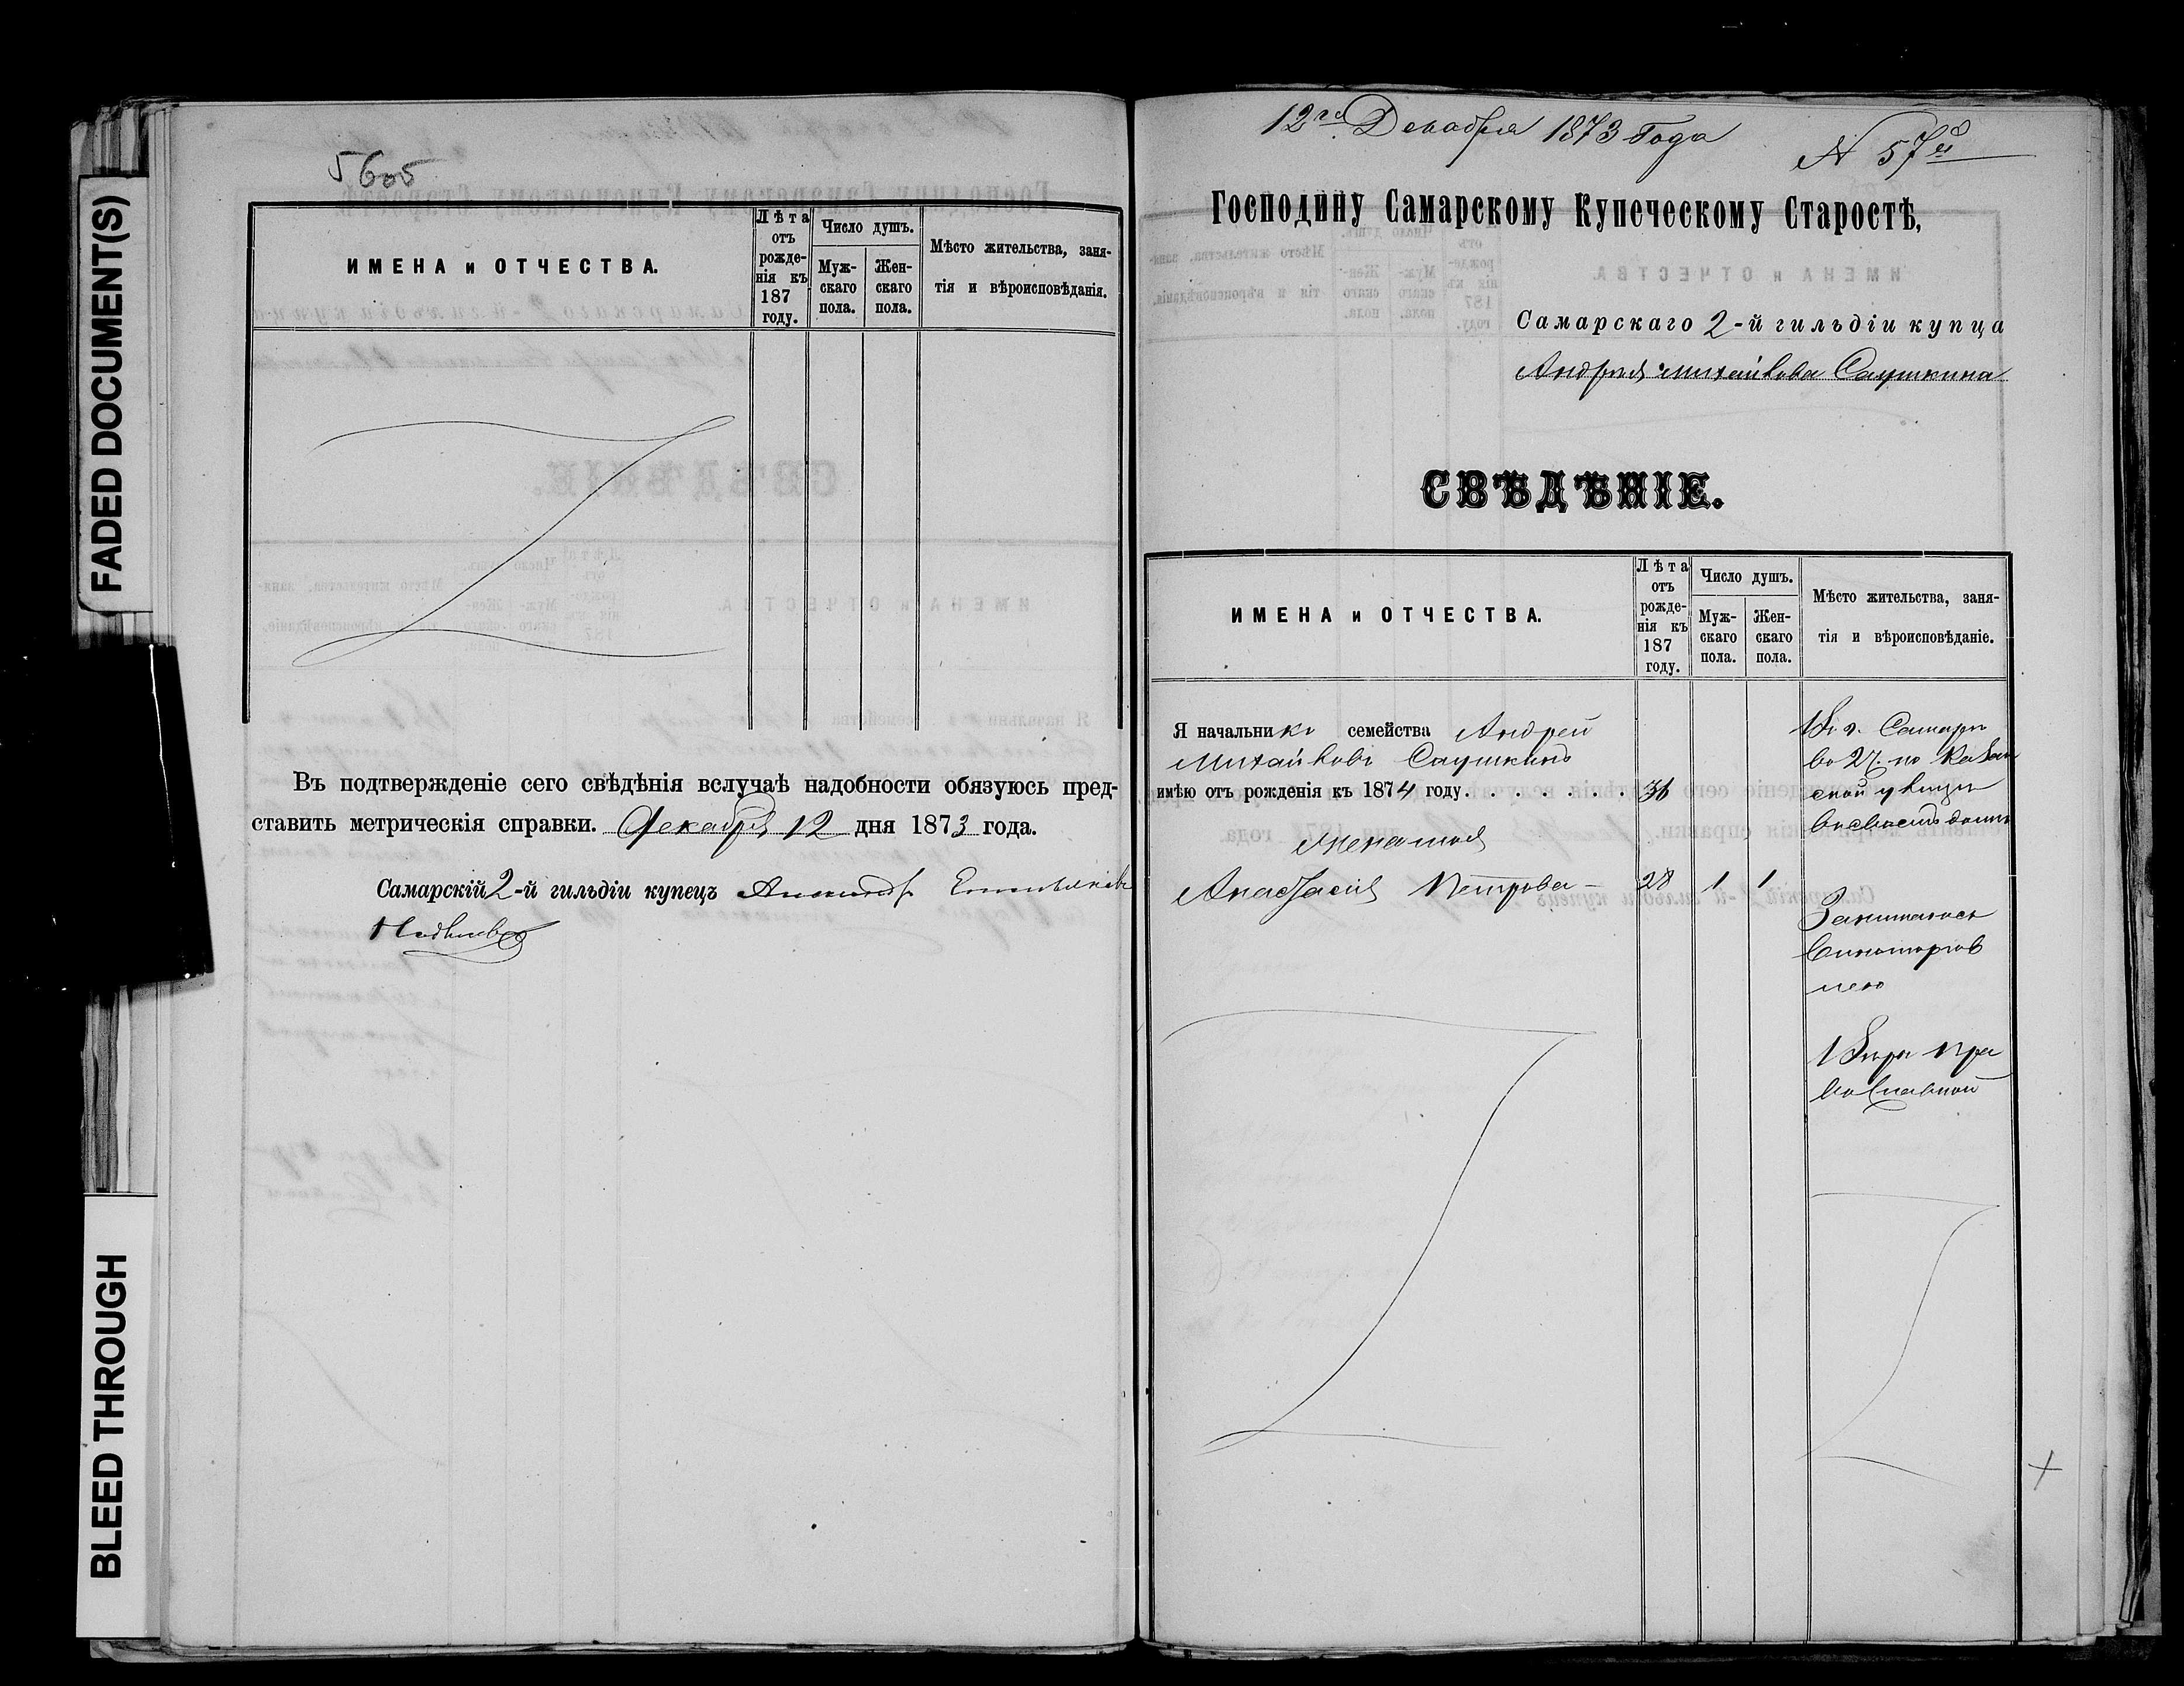 FADED DOCUMENT(S)
BLEED THROUGH
5605
ИМЕНА и ОТЧЕСТВА.
Лѣта
отъ
рожде-
нія къ
187
году.
Число душъ.
Муж-
скаго
пола.
Жен-
скаго
пола.
Мѣсто жительства, заня-
тія и вѣроисповѣданія.
Въ подтвержденіе сего свѣдѣнія вслучаѣ надобности обязуюсь пред-
ставить метрическія справки. Декабря 12 дня 1873 года.
Самарскій 2-й гильдіи купецъ
12го Декабря 1873 Года
N 57й
Господину Самарскому Купеческому Старостѣ,
Самарскаго 2-й гильдіи купца
Андрея Михайлова Саушкина
СВѢДѢНІЕ.
ИМЕНА и ОТЧЕСТВА.
Лѣта
отъ
рожде-
нія къ
187
году.
Число душъ.
Муж-
скаго
пола.
Жен-
скаго
пола.
Мѣсто жительства, заня-
тія и вѣроисповѣданіе.
Я начальникъ семейства Андрей
Михайловъ Саушкинъ
имѣю отъ рожденія къ 1874 году. . . . . . . 36
Жена моя
Анастасія Петрова - 28 1 1
Въ г. Самарѣ
во 2 ч. по Казан
ской улицѣ
Занимаюсь
виноторгов
лею
Вѣры Пра
вославной